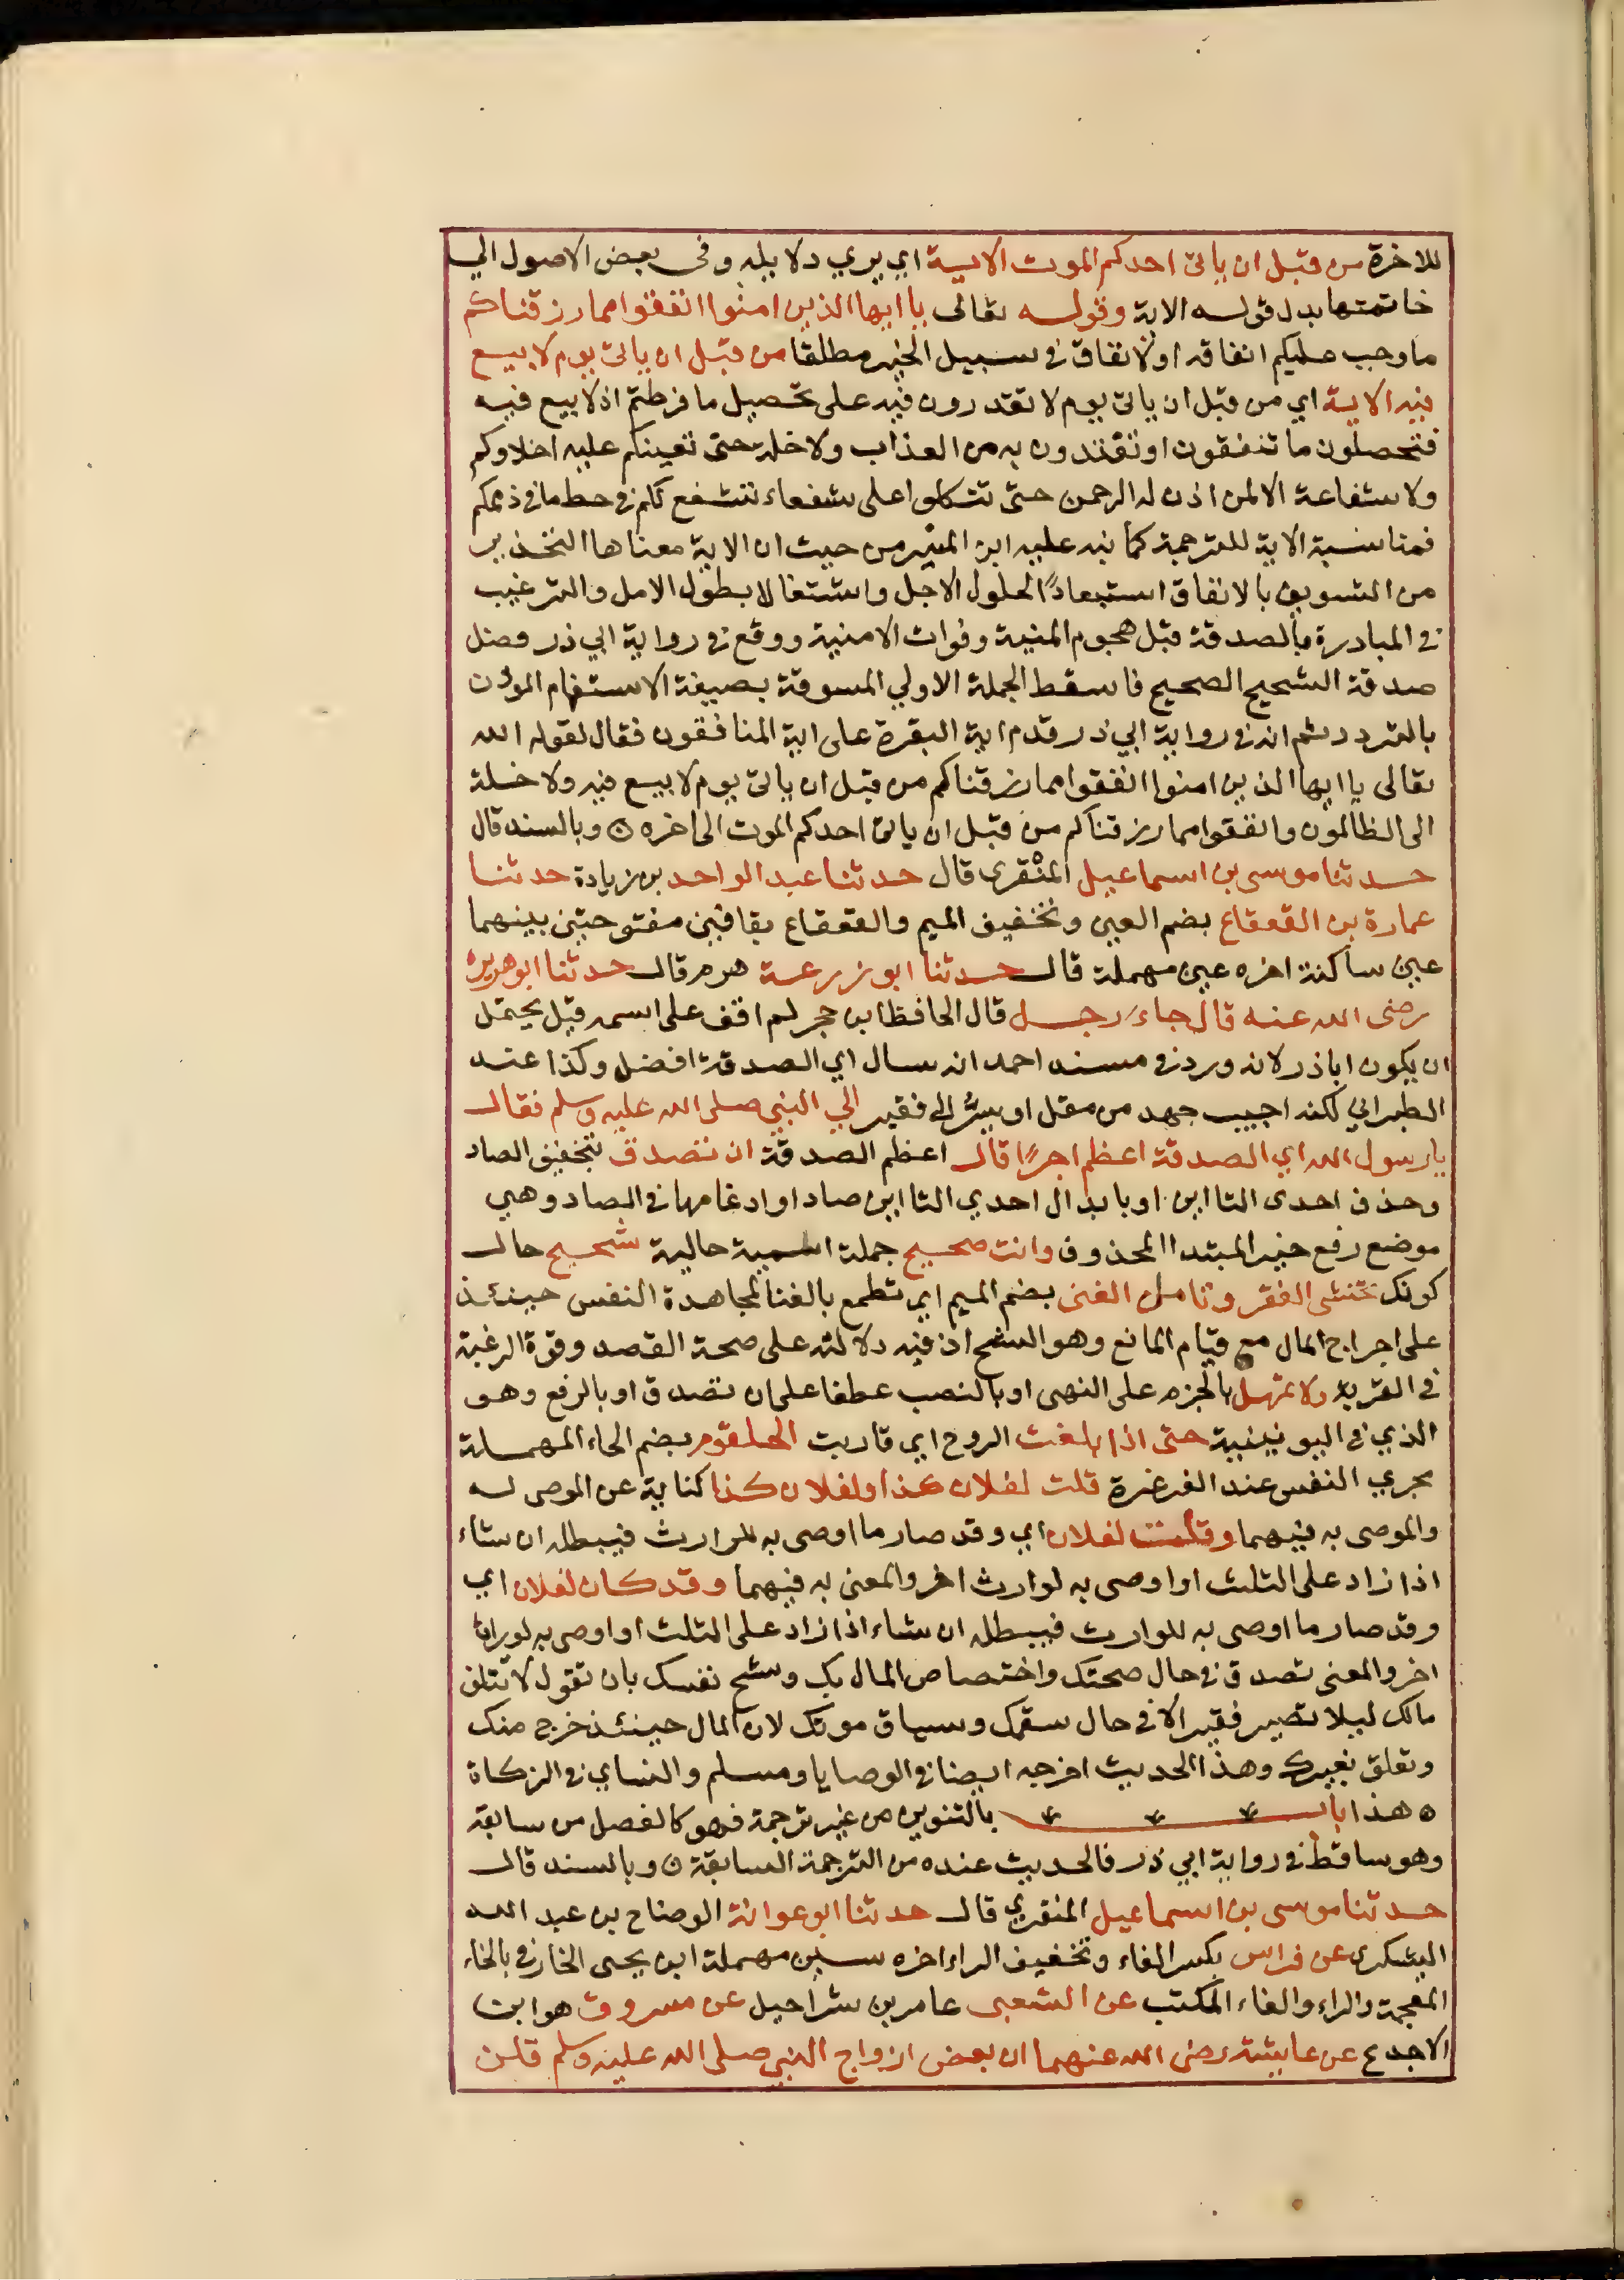 للاخرة من قبل ان ياتى احدكم الموت الاية اي يري دلايله وفى بعض الاصول الي
خاتمتها بدل قوله الاية وقوله تعالى يا ايها الذين امنوا انفقوا مما رزقناكم
ما وجب عليكم انفاقه او الانفاق في سبيل الخير مطلقا من قبل ان ياتى يوم لا بيع
فيه الاية اي من قبل ان ياتى يوم لا تقدرون فيه على تحصيل ما فرطتم اذ لا بيع فيه
فتحصلون ما تنفقون او تفتدون به من العذاب ولا خلة حتى تعينكم عليه اخلاوكم
ولا شفاعة الا لمن اذن له الرحمن حتى تتكلوا على شفعاء تشفع لكم في حط ما في ذممكم
فمناسبة الاية للترجمة كما نبه عليه ابن المنير من حيث ان الاية معناها التحذير
من التسويف بالانفاق استبعادًا لحلول الاجل واشتغالا بطول الامل والترغيب
في المبادرة بالصدقة قبل هجوم المنية وفوات الامنية ووقع في رواية ابي ذر فضل
صدقة الشحيح الصحيح فاسقط الجملة الاولي المسوقة بصيغة الاستفهام الموذن
بالتردد ثم انه في رواية ابي ذر قدم اية البقرة على اية المنافقون فقال لقوله الله
تعالى يا ايها الذين امنوا انفقوا مما رزقناكم من قبل ان ياتى يوم لا بيع فيه ولا خلة
الى الظالمون وانفقوا مما رزقناكم من قبل ان ياتى احدكم الموت الى اخره ن وبالسند قال
حدثنا موسى بن اسماعيل المنْقرى قال حدثنا عبد الواحد بن زيادة حدثنا
عمارة بن القعقاع بضم العين وتخفيف الميم والقعقاع بقافين مفتوحتين بينهما
عين ساكنة اخره عين مهملة قال حدثنا ابو زرعة هرم قال حدثنا ابو هريرة
رضى الله عنه قال جاء رجل قال الحافظ ابن حجر لم اقف على اسمه قيل يحتمل
ان يكون ابا ذر لانه ورد في مسند احمد انه سال اي الصدقة افضل وكذا عند
الطبراني لكنه اجيب جهد من مقل او سرٌّ الى فقير الي النبي صلى الله عليه وسلم فقال
يا رسول الله اي الصدقة اعظم اجرًا قال اعظم الصدقة ان تصدق بتخفيف الصاد
وحذف احدى التااين او بابدال احدي التااين صادا وادغامها في الصاد وهي
موضع رفع خبر المبتدا المحذوف وانت صحيح جملة اسمية حالية شحيح حال
كونك تخشى الفقر وتامل الغنى بضم الميم اي تطمع بالغنا لمجاهدة النفس حينئذ
على اجراج المال مع قيام المانع وهو الشح اذ فيه دلالة على صحة القصد وقوة الرغبة
في القربة ولا تمهل بالجزم على النهى او بالنصب عطفا على ان تصدق او بالرفع وهو
الذي في اليونينية حتى اذا بلغت الروح اي قاربت الحلقوم بضم الحاء المهملة
مجري النفس عند الغرغرة قلت لفلان كذا ولفلان كذا كناية عن الموصى له
والموصى به فيهما وقلت لفلان اي وقد صار ما اوصى به للوارث فيبطله ان شاء
اذا زاد على الثلث او اوصى به لوارث اخر والمعنى به فيهما وقد كان لفلان اي
وقد صار ما اوصى به للوارث فيبطله ان شاء اذا زاد على الثلث او اوصى به لوراث
اخر والمعنى تصدق في حال صحتك واختصاص المال بك وشح نفسك بان تقول لا تتلف
مالك ليلا تصير فقير الا في حال سقمك وسياق موتك لان المال حينئذ خرج منك
وتعلق بغيرك وهذا الحديث اخرجه ايضا في الوصايا ومسلم والنساي في الزكاة
ه هذا باب بالتنوين من غير ترجمة فهو كالفصل من سابقة
وهو ساقط في رواية ابي ذر فالحديث عنده من الترجمة السابقة ن وبالسند قال
حدثنا موسى بن اسماعيل المنقري قال حدثنا ابو عوانة الوضاح بن عبد الله
اليشكرى عن فراس بكسر الفاء وتخفيف الراء اخره سين مهملة ابن يحيى الخارفي بالخاء
المعجمة والراء والفاء المكتب عن الشعبى عامر بن شراحيل عن مسروق هو ابن
الاجدع عن عايشة رضى الله عنهما ان بعض ازواج النبي صلى الله عليه وسلم قلن